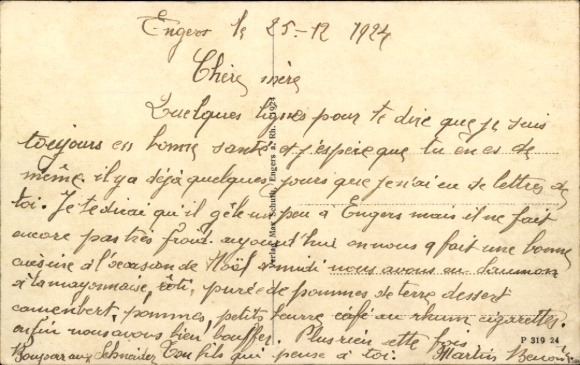 Engers le 25-12 1924
Chère mère
Quelques lignes pour te dire que je suis
toujours en bonne santé et j'espère que tu en es de
même. il y a déjà quelques jours que je n'ai eu de lettres de
toi. Je te dirai qu'il gèle un peu à Engers mais il ne fait
encore pas très froid. aujourd'hui on nous a fait une bonne
cuisine à l'occasion de Noël à midi nous avons eu du saumon
à la mayonnaise, rôti, purée de pommes de terre, dessert
camembert, pommes, petits beurre café au rhum cigarettes.
enfin nous avons bien bouffer. Plus rien cette fois
Bonjour aux Schneider Ton fils qui pense à toi. Martin
Verlag Max Schuth, Engers a. Rh. 1924
P 319 24